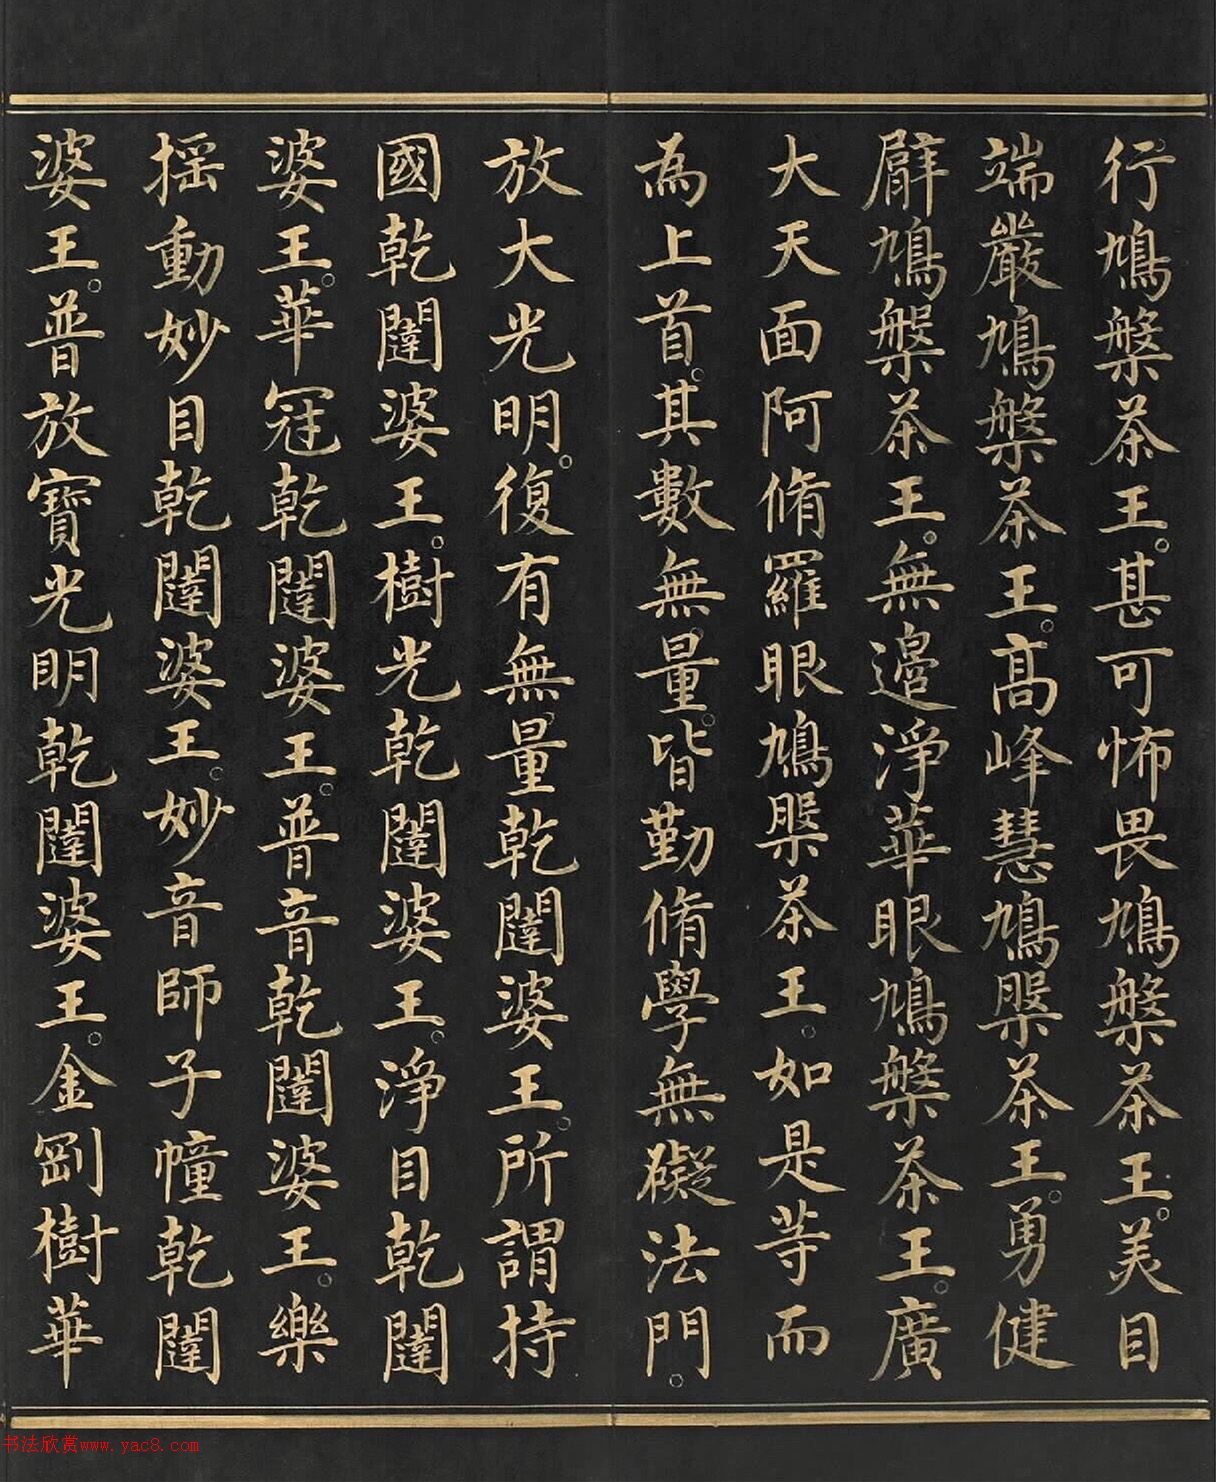 行鳩槃茶王。甚可怖畏鳩槃茶王。美目
端嚴鳩槃茶王。高峰慧鳩槃茶王。勇健
臂鳩槃茶王。無邊淨華眼鳩槃茶王。廣
大天面阿脩羅眼鳩槃茶王。如是等而
為上首。其數無量。皆勤脩學無礙法門。
放大光明。復有無量乾闥婆王。所謂持
國乾闥婆王。樹光乾闥婆王。淨目乾闥
婆王。華冠乾闥婆王。普音乾闥婆王。樂
揺動妙目乾闥婆王。妙音師子幢乾闥
婆王。普放寶光明乾闥婆王。金剛樹華
书法欣赏www.yac8.com